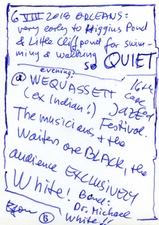 6 VIII 2018 ORLEANS:
very early to Higgins Pond
& Little Cliff pond for swim-
ming & walking
so QUIET
evening:
@ WEQUASSETT 16th
(ex Indian!) Cape
Jazzy
The musicians & the Festival.
Waiters are BLACK, the
audience EXCLUSIVELY
White! Band:
Dr. Michael
White!!
B